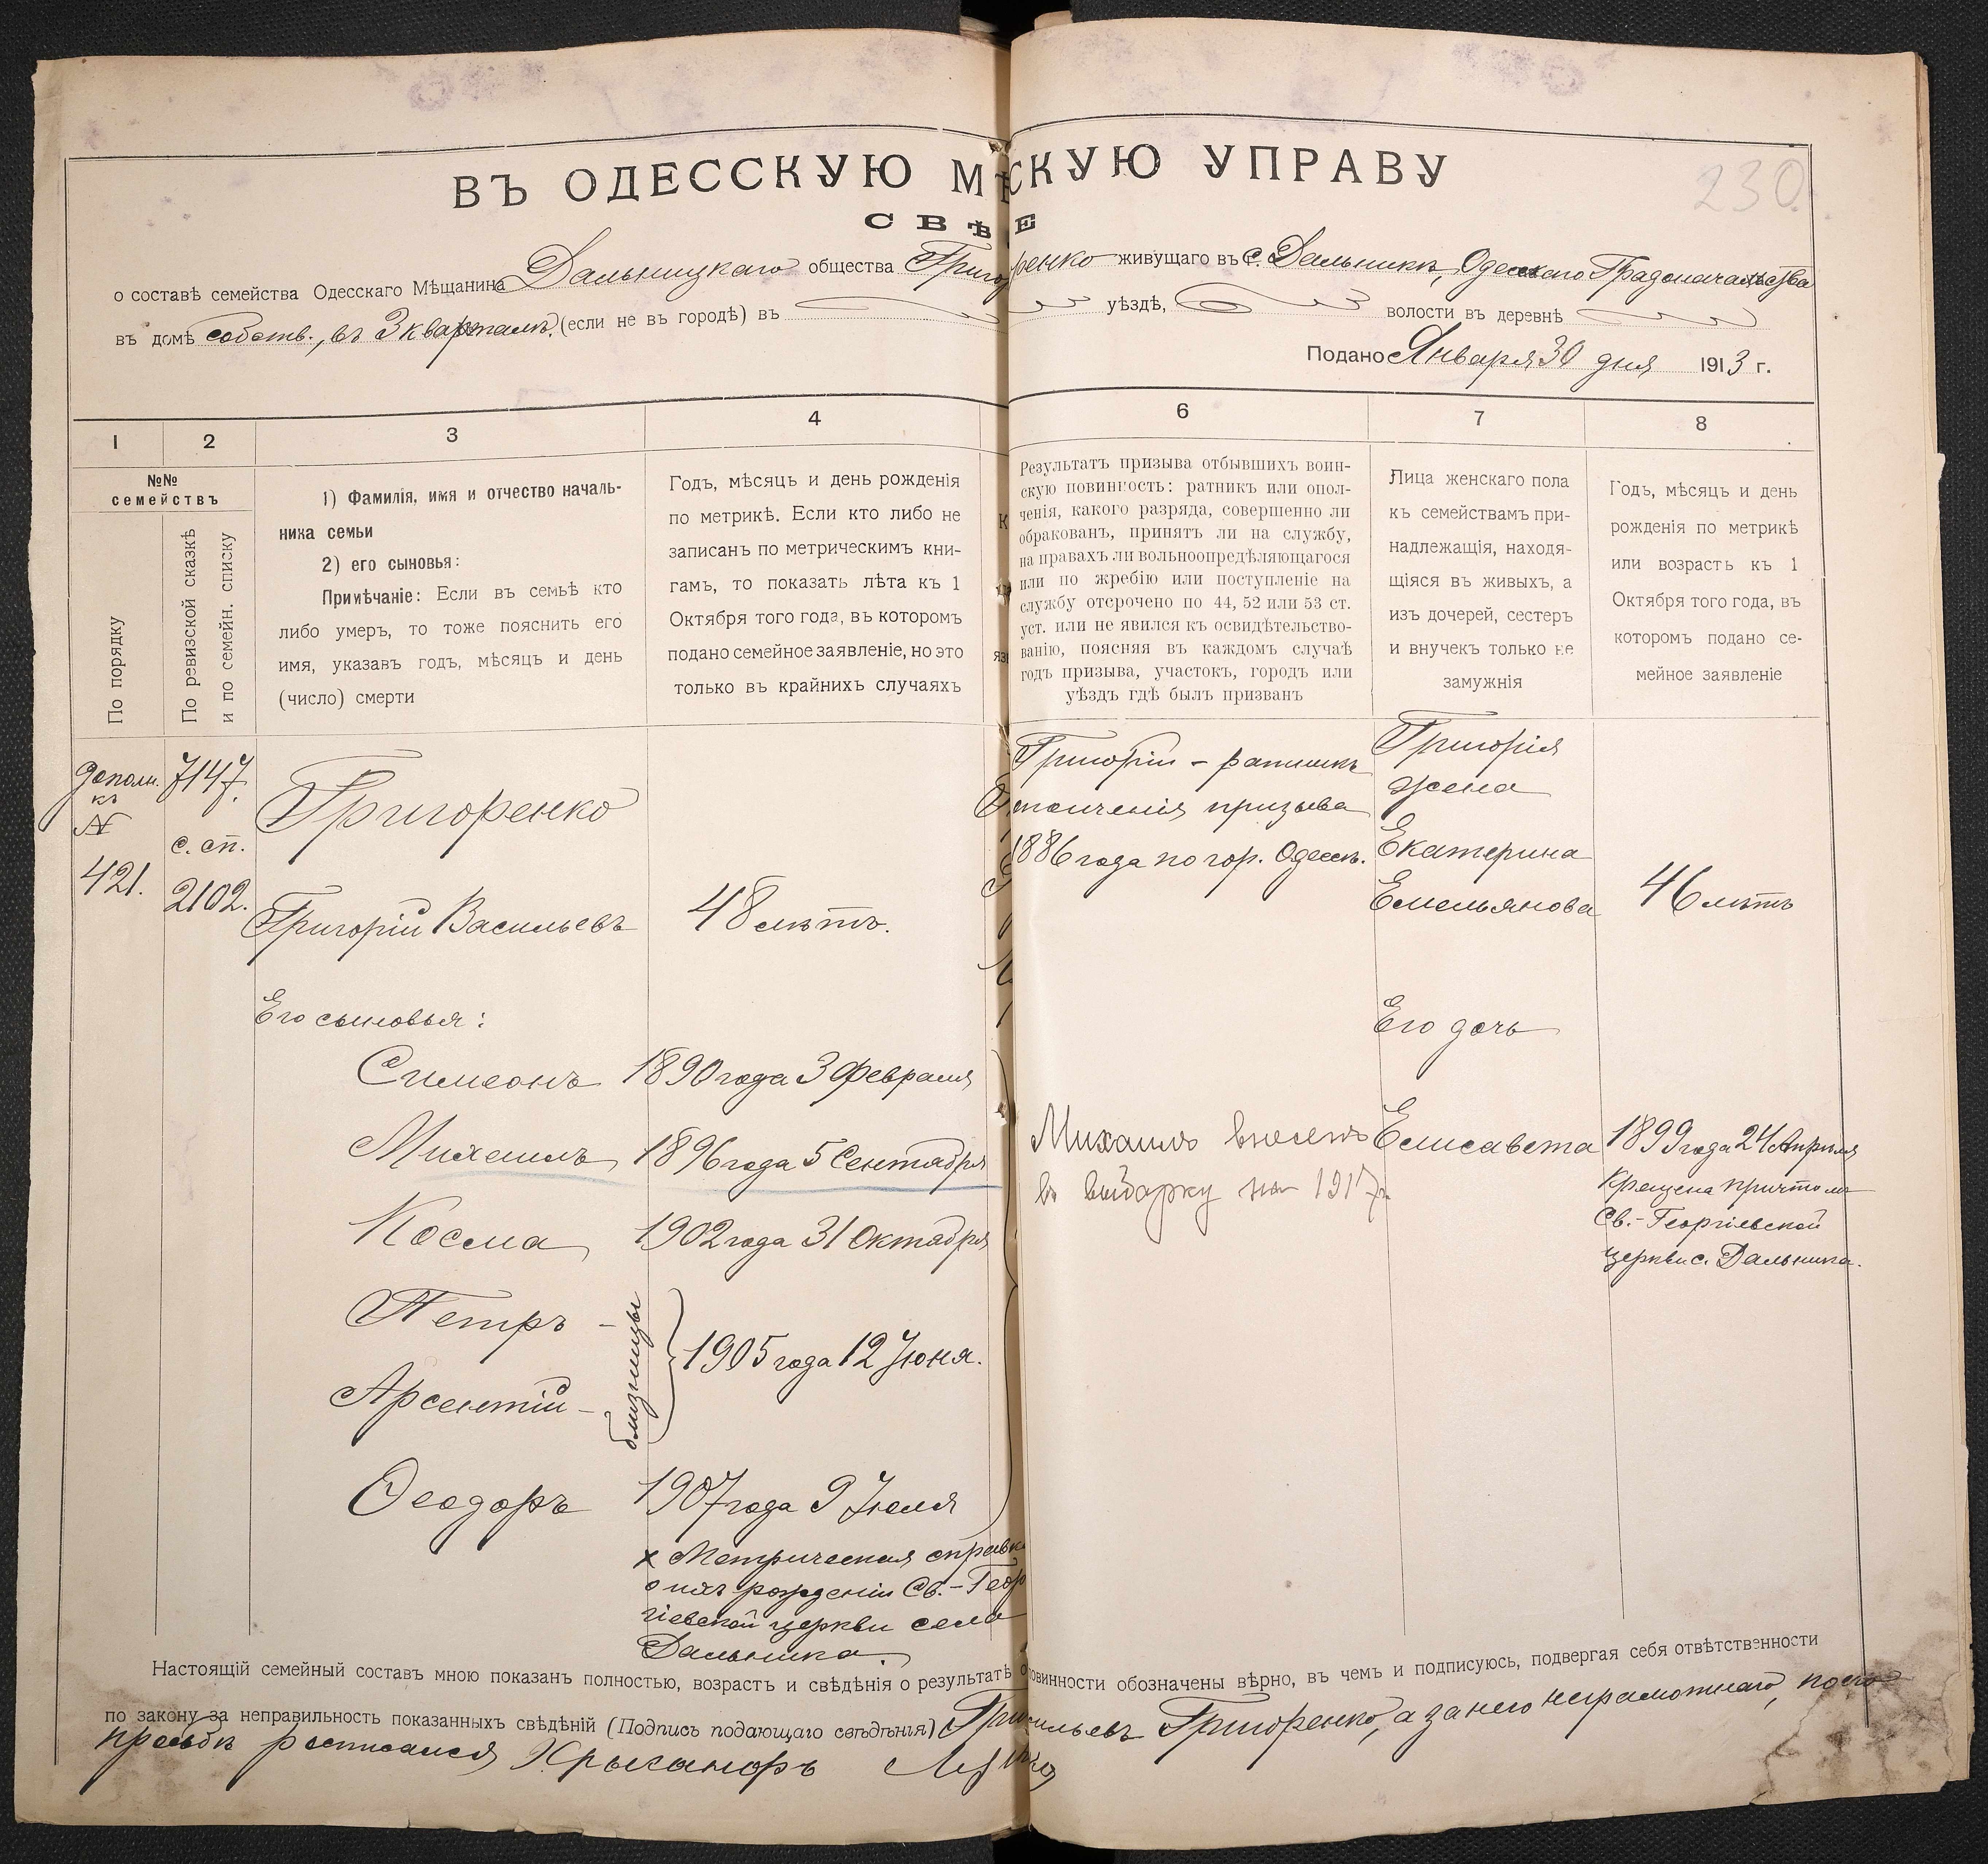 ВЪ ОДЕССКУЮ МѢ СКУЮ УПРАВУ
230
СВѢ Е
о составѣ семейства Одесскаго Мѣщанина Дальницкаго общества Григоренко живущаго въ с. Дальникѣ, Одесскаго Градоначальства
въ домѣ собств., въ 3 кварталѣ, (если не въ городѣ) въ уѣздѣ, волости въ деревнѣ
Подано Января 30 дня 1913 г.
1 2 3 4 6 7 8
№№
семействъ
По порядку
По ревизской сказкѣ
и по семейн. списку
1) Фамилія, имя и отчество началь-
ника семьи
2) его сыновья:
Примѣчаніе: Если въ семьѣ кто
либо умеръ, то тоже пояснить его
имя, указавъ годъ, мѣсяцъ и день
(число) смерти
Годъ, мѣсяцъ и день рожденія
по метрикѣ. Если кто либо не
записанъ по метрическимъ кни-
гамъ, то показать лѣта къ 1
Октября того года, въ которомъ
подано семейное заявленіе, но это
только въ крайнихъ случаяхъ
Результатъ призыва отбывшихъ воин-
скую повинность: ратникъ или опол-
ченія, какого разряда, совершенно ли
обракованъ, принятъ ли на службу,
на правахъ ли вольноопредѣляющагося
или по жребію или поступленіе на
службу отсрочено по 44, 52 или 53 ст.
уст. или не явился къ освидѣтельство-
ванію, поясняя въ каждомъ случаѣ
годъ призыва, участокъ, городъ или
уѣздъ гдѣ былъ призванъ
Лица женскаго пола
къ семействамъ при-
надлежащія, находя-
щіяся въ живыхъ, а
изъ дочерей, сестеръ
и внучекъ только не
замужнія
Годъ, мѣсяцъ и день
рожденія по метрикѣ
или возрастъ къ 1
Октября того года, въ
которомъ подано се-
мейное заявленіе
дополн.
къ
№
421.
7147.
с. сп.
2102.
Григоренко
Григорій Васильевъ 48 лѣтъ.
Григорій - ратникъ
Ополченія призыва
1886 года по гор. Одессѣ.
Григорія
жена
Екатерина
Емельянова
46 лѣтъ
Его сыновья:
Его дочь
Симеонъ 1890 года 3 Февраля
Михаилъ 1896 года 5 Сентября
Михаилъ внесенъ
въ выборку на 1917 г.
Елисавета 1899 года 24 Апрѣля
Крещена причтомъ
Св.-Георгіевской
церкви с. Дальника.
Косма 1902 года 31 Октября
Петръ -
Арсентій -
близнецы
1905 года 12 Іюня.
Ѳеодоръ 1907 года 9 Іюля
х Метрическая справка
о ихъ рожденіи Св.-Геор
гіевской церкви села
Дальника.
Настоящій семейный составъ мною показанъ полностью, возрастъ и свѣдѣнія о результатѣ о овинности обозначены вѣрно, въ чемъ и подписуюсь, подвергая себя отвѣтственности
по закону за неправильность показанныхъ свѣдѣній (Подпись подающаго свѣдѣнія) Гри сильевъ Григоренко, а за него неграмотнаго, по его
просьбѣ росписался